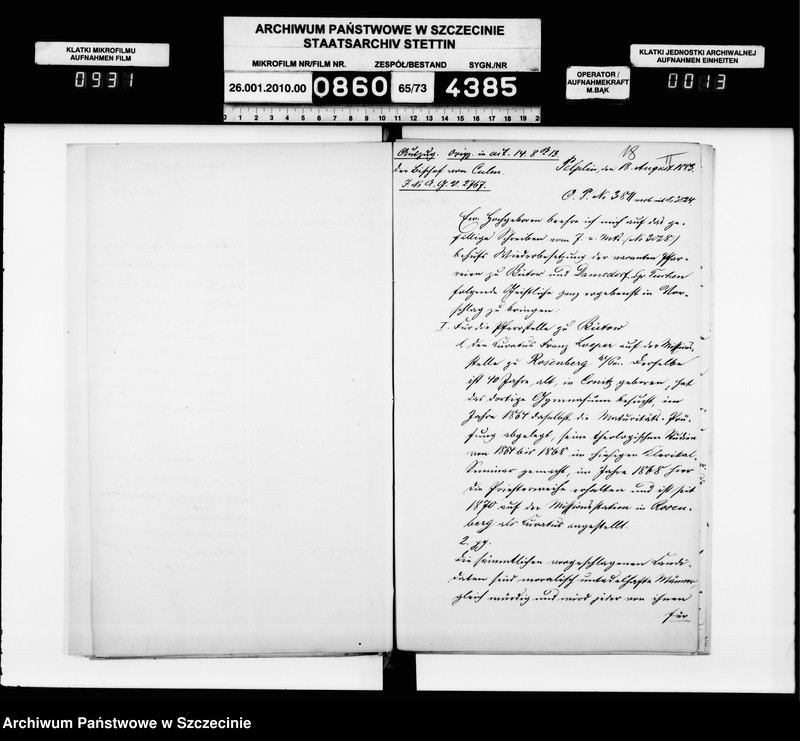 ARCHIWUM PAŃSTWOWE W SZCZECINIE
STAATSARCHIV STETTIN
MIKROFILM NR/FILM NR. ZESPÓŁ/BESTAND SYGN./NR
26.001.2010.00 0860 65/73 4385
KLATKI MIKROFILMU
AUFNAHMEN FILM
0931
OPERATOR /
AUFNAHMEKRAFT
M.BĄK
KLATKI JEDNOSTKI ARCHIWALNEJ
AUFNAHMEN EINHEITEN
0013
0 1 2 3 4 5 6 7 8 9 10 11 12 13 14 15 16 17 18 19 20
18
Auszug. Orig. in act. 14. 8
Der Bischof von Culm.
J. № A. G. V. 2767.
Pelplin, den 18. August 1883.
O. P. № 3811
Ew. Hochgeboren beehre ich mich auf das ge-
fällige Schreiben vom 7. v. Mts. (№ 3028.)
behufs Wiederbesetzung der vacanten Pfar-
reien zu Bütow und Damsdorf
folgende Geistliche ganz ergebenst in Vor-
schlag zu bringen:
I. Für die Pfarrstelle zu Bütow
1. den Curatus Franz Looper auf der Missions-
stelle zu Rosenberg Derselbe
ist 40 Jahre alt, in Conitz geboren, hat
das dortige Gymnasium besucht, im
Jahre 1864 daselbst die Maturitäts-Prü-
fung abgelegt, seine theologischen Studien
von 1864 bis 1868 im hiesigen Klerikal-
Seminar gemacht, im Jahre 1868 hier
die Priesterweihe erhalten und ist seit
1870 auf der Missionsstation in Rosen-
berg als Curatus angestellt.
2. pp.
Die sämmtlichen vorgeschlagenen Candi-
daten sind moralisch untadelhafte Männer,
gleich würdig und wird jeder von ihnen
für
Archiwum Państwowe w Szczecinie